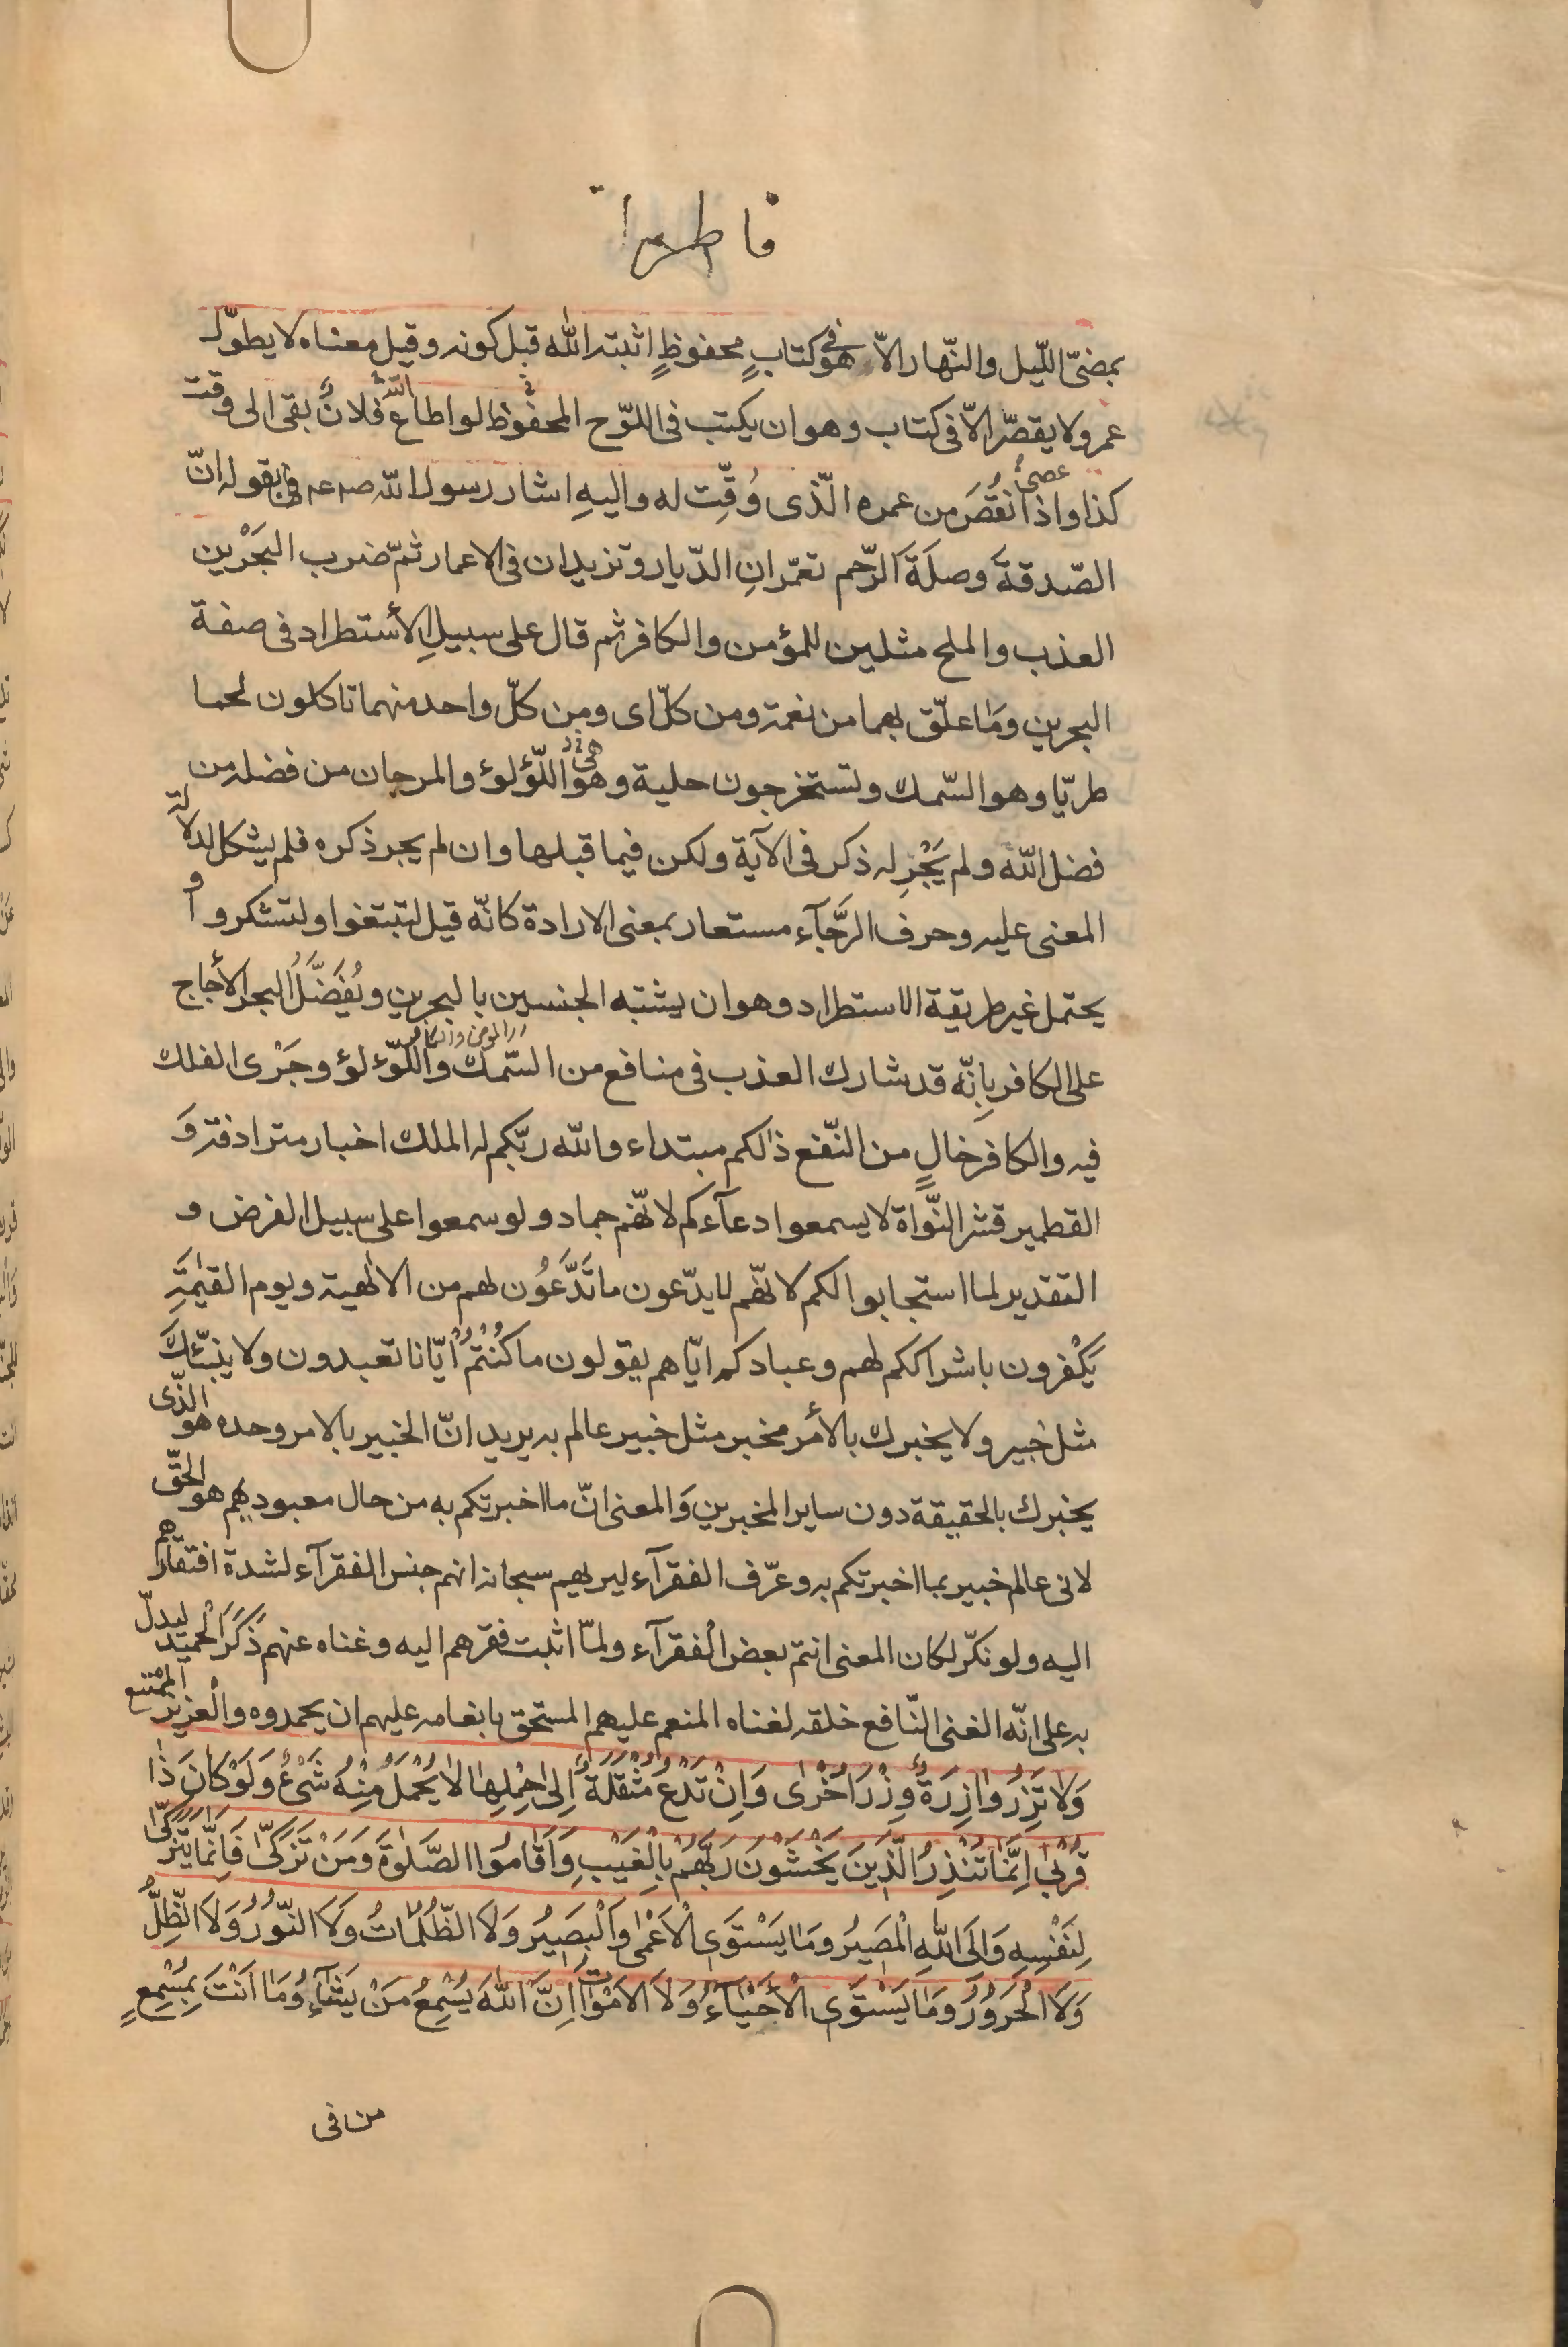 فاطر
بمضىّ اللّيل والنّهار الاّ هو فى كتابٍ محفوظٍ اثبته اللّٰه قبل كونه وقيل معناه لا يطوّل
عمر ولا يقصّر الاّ فى كتاب وهو ان يكتب فى اللوّح المحفوظ لو اطاع اللّٰه فلانٌ بقى الى وقت
كذا واذا عصى نقُصَ من عمره الّذى وُقِّت له واليهِ اشار رسول اللّٰه فى بقوله انّ
الصّدقةَ وصلَةَ الرّحم تعمّرانِ الدّيار وتزيدان فى الاعمار ثمّ ضرب البَحْرين
العذب والملح مثلين للمؤمن والكافر ثم قال على سبيلِ الأستطراد فى صفة
البحرين ومَا علّق بهما من نعمة ومن كلّ اى ومن كلّ واحد منهما تاكلون لحما
طريّا وهو السّمك وتستخرجون حلية وهى اللّؤلوٴ والمرجان من فضله من
فضل اللّٰه ولم يَجْرِ له ذكر فى الآية ولكن فيما قبلها وان لم يجر ذكره فلم يشكل لدلالة
المعنى عليه وحرف الرَّجَآء مستعار بمعنى الارادة كانّه قيل لتبتغوا ولتشكروا و
يحتمل غير طريقة الاستطراد وهو ان يشتبه الجنسين بالبحرين ويُفَضَّلُ البحر الأجاج
على الكافر بِانّه قد شارك العذب فى منافع من السّمك واللّوٴلوٴ وجَرْى الفلك
فيه والكافر خالٍ من النّفع ذٰلكم مبتداء واللّٰه ربّكم له الملك اخبار مترادفة وَ
القطمير قشر النّواة لا يسمعوا دعآءكم لانّهم جماد ولو سمعوا على سبيل الفرض و
التقدير لما استجابوا لكم لانّهم لا يدّعون ما تَدَّعُون لهم من الالٰهية ويوم القيٰمَةِ
يَكْفرون باشراككم لهم وعبادكم ايّاهم يقولون ما كُنْتُمْ اُيّانا تعبدون ولا ينبّئكَ
مثل خبير ولا يخبرك بالأمر مخبر مثل خبير عالم به يريد انّ الخبير بالامر وحده هو الّذى
يخبرك بالحقيقة دون ساير المخبرين وَالمعنى انّ ما اخبرتكم به من حال معبوديهم هو الحقّ
لانى عالم خبير بما اخبرتكم به وعرّف الفقرآء ليريهم سبحانه انهم جنس الفقرآء لشدة افتقارهم
اليه ولو نكّر لكان المعنى انتم بعض الْفقرآء ولمّا اثبت فقرهم اليه وغناه عنهم ذَكَرَ الْحميد ليدلّ
به على انّه الغنى النّافع خلقه لغناه المنعم عليهم المستحق بانعامه عليهم ان يحمدوه والْعزيز الممتنع
وَلَا تَزِرُ وَازِرَةٌ وِزْرَ اُخْرٰى وَاِنْ تَدْعُ مُثْقَلَةٌ اِلىٰ حِمْلِهَا لَا يُحْمَلْ مِنْهُ شَىْءٌ وَلَوْ كَانَ ذَا
قُرْبٰى اِنَّمَا تُنْذِرُ الَّذِينَ يَخْشَوْنَ رَبَّهُمْ بِالْغَيْبِ وَاَقَامُوا الصَّلٰوةَ وَمَنْ تَزَكّىٰ فَاِنَّمَا يَتَزَكّىٰ
لِنَفْسِهِ وَاِلَى اللّٰهِ الْمَصِيرُ وَمَا يَسْتَوِى الْاَعْمٰى وَالْبَصِيرُ وَلَا الظُّلُمَاتُ وَلَا النّوُرُ وَلَا الظِّلُّ
وَلَا الْحَرُورُ وَمَا يَسْتَوِى الْاَحْيَآءُ وَلَا الاَمْوَاتُ اِنَّ اللّٰهَ يُسْمِعُ مَنْ يَشَآءُ وَمَا اَنْتَ بِمُسْمِعٍ
من فى